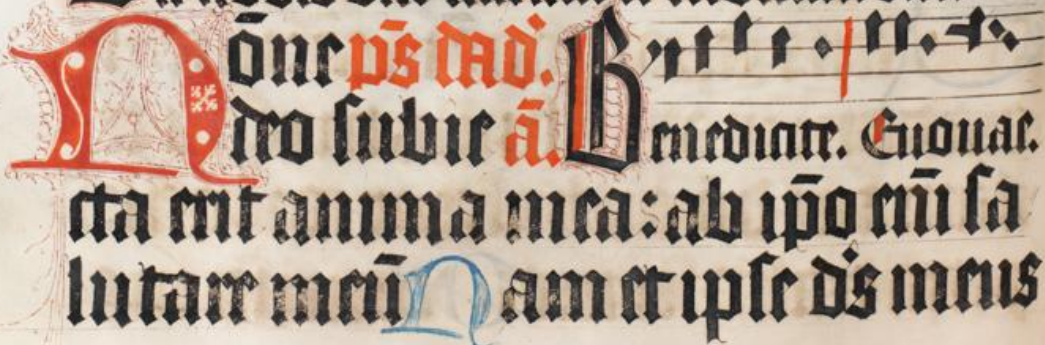 Nōne p̄s dad̕.
deo ſubie ā. Benedicite. Euouae.
cta erit anima mea: ab ip̄o eni̅ ſa
lutare meū Nam et ipſe d̄s meus